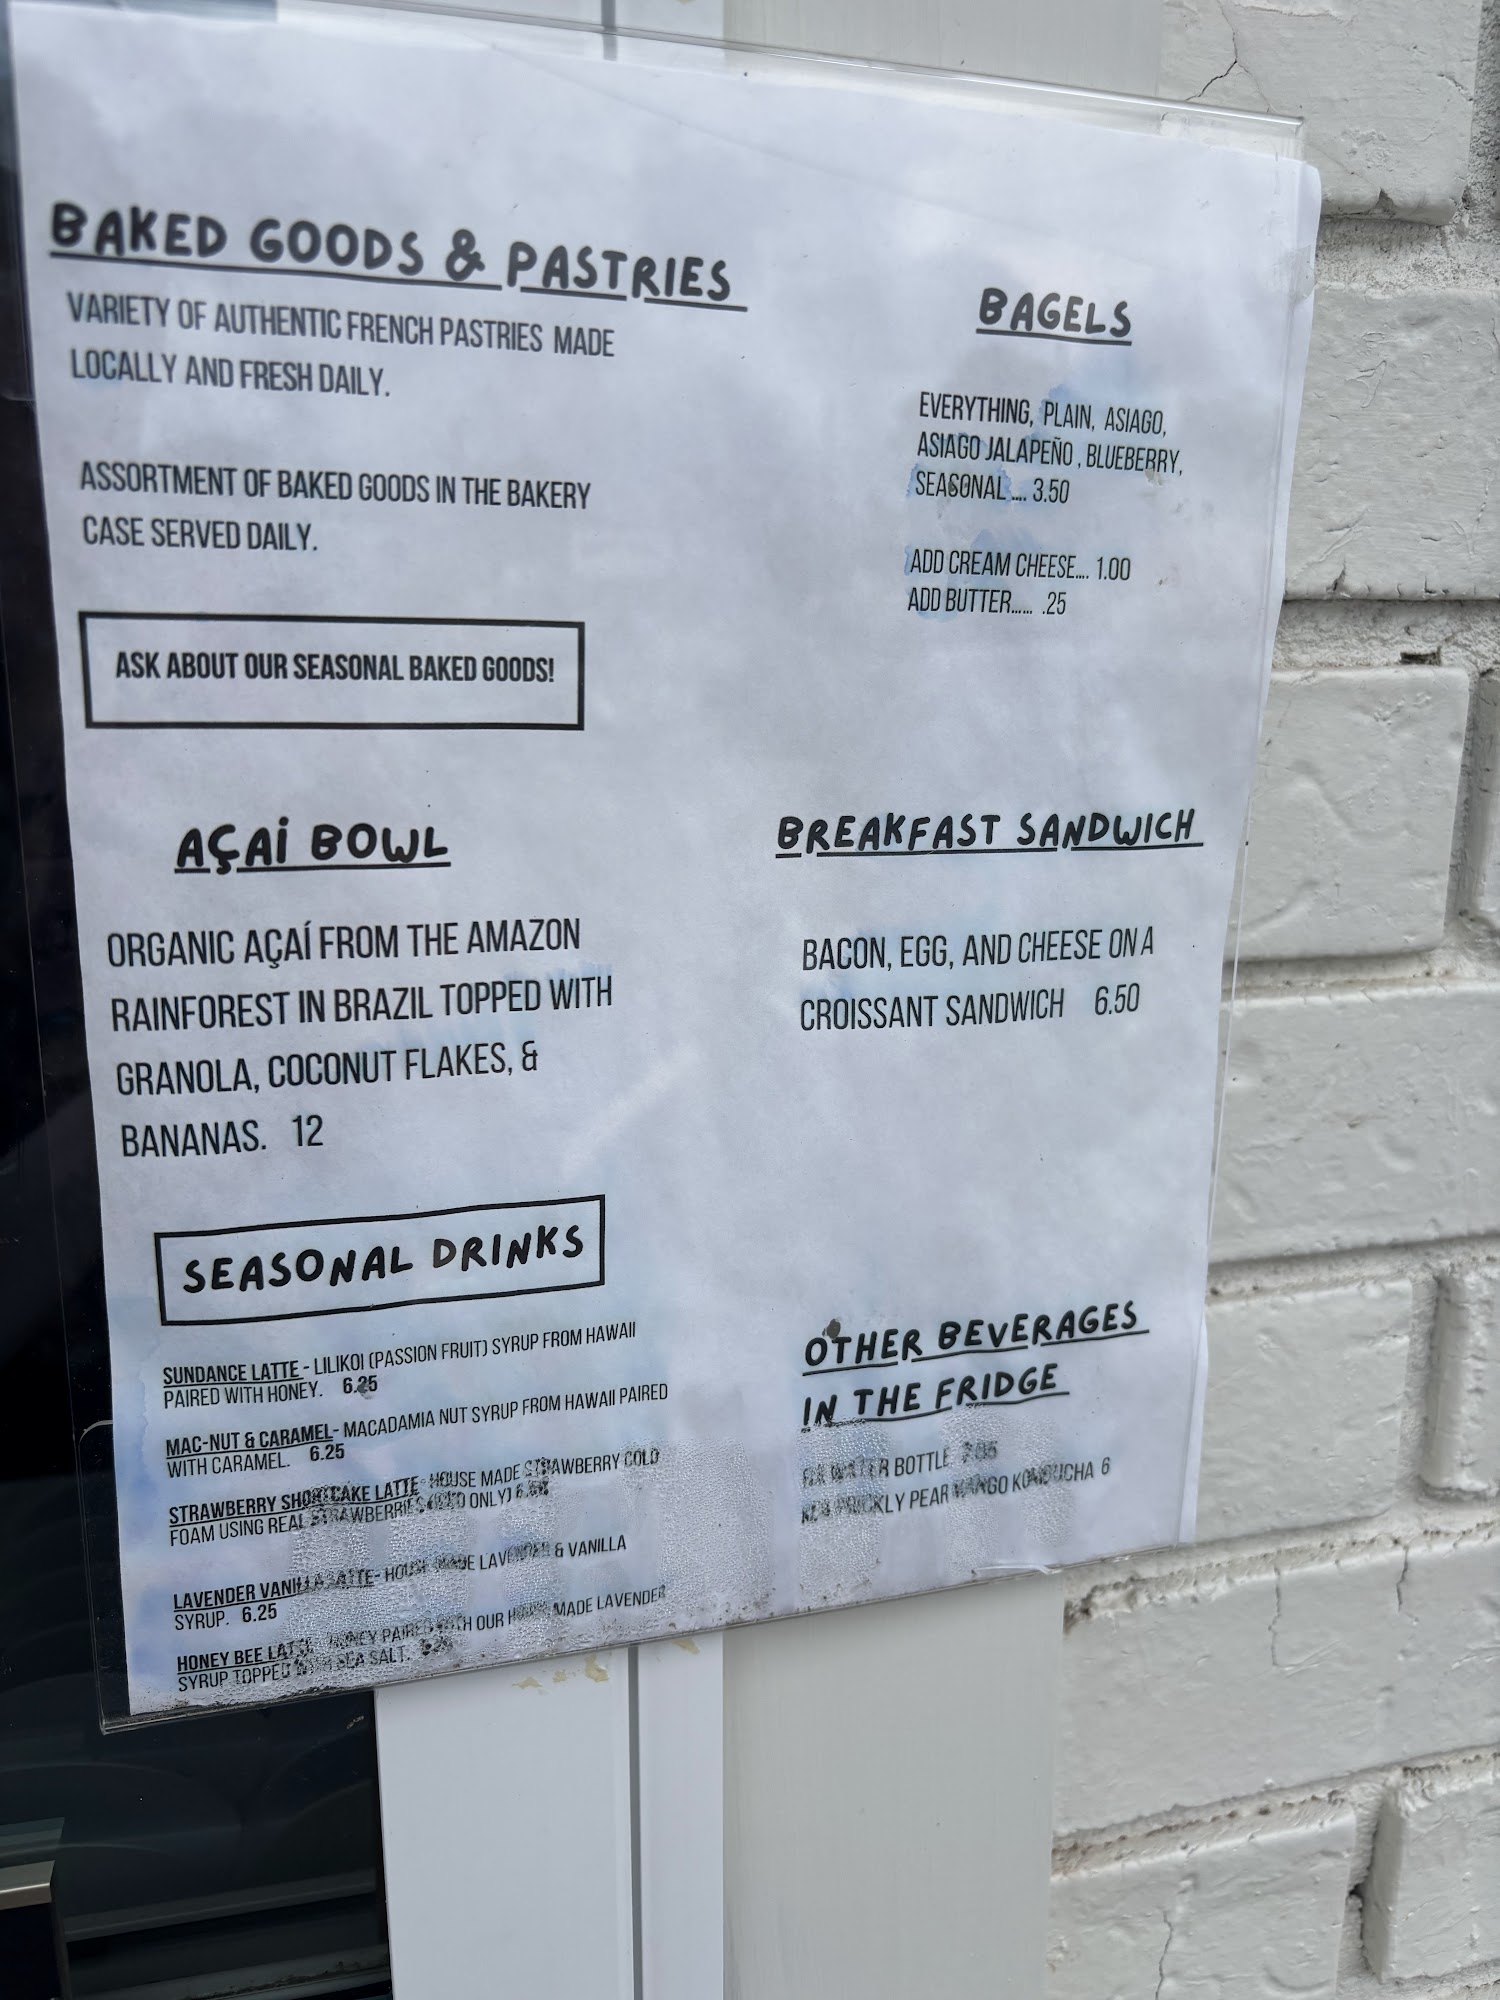 BAKED GOODS & PASTRIES
VARIETY OF AUTHENTIC FRENCH PASTRIES MADE
LOCALLY AND FRESH DAILY.
ASSORTMENT OF BAKED GOODS IN THE BAKERY
CASE SERVED DAILY.
ASK ABOUT OUR SEASONAL BAKED GOODS!
BAGELS
EVERYTHING, PLAIN, ASIAGO,
ASIAGO JALAPEÑO , BLUEBERRY,
SEASONAL .... 3.50
ADD CREAM CHEESE.... 1.00
ADD BUTTER...... .25
AÇAÍ BOWL
ORGANIC AÇAÍ FROM THE AMAZON
RAINFOREST IN BRAZIL TOPPED WITH
GRANOLA, COCONUT FLAKES, &
BANANAS. 12
BREAKFAST SANDWICH
BACON, EGG, AND CHEESE ON A
CROISSANT SANDWICH 6.50
SEASONAL DRINKS
SUNDANCE LATTE - LILIKOI (PASSION FRUIT) SYRUP FROM HAWAII
PAIRED WITH HONEY. 6.25
MAC-NUT & CARAMEL- MACADAMIA NUT SYRUP FROM HAWAII PAIRED
WITH CARAMEL. 6.25
STRAWBERRY SHORTCAKE LATTE- HOUSE MADE STRAWBERRY COLD
FOAM USING REAL STRAWBERRIES (ICED ONLY)
LAVENDER VANILLA LATTE- HOUSE MADE LAVENDER & VANILLA
SYRUP. 6.25
HONEY BEE LATTE- HONEY PAIRED WITH OUR HOUSE MADE LAVENDER
SYRUP TOPPED WITH SEA SALT.
OTHER BEVERAGES
IN THE FRIDGE
WATER BOTTLE
PRICKLY PEAR MANGO KOMBUCHA 6